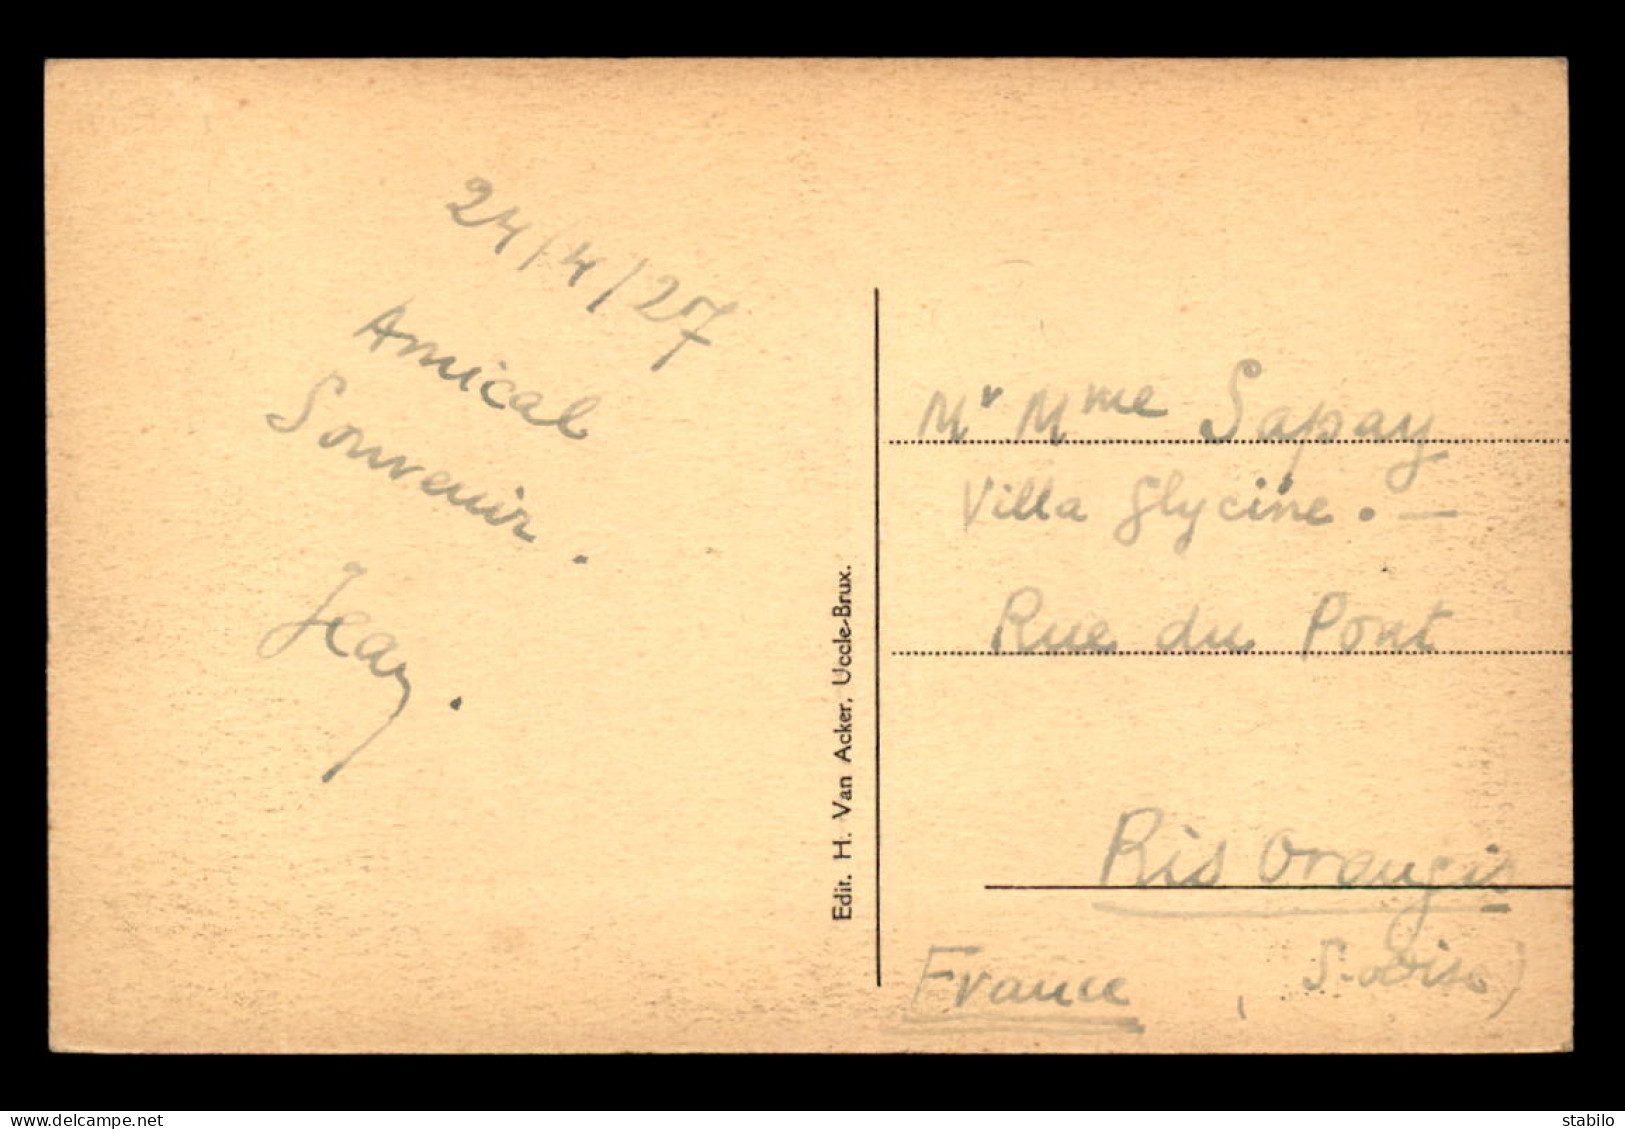 24/4/27
Amical
Souvenir.
Jean.
Edit. H. Van Acker, Uccle-Brux.
Mr Mme Sapay
Villa Glycine. —
Rue du Pont
Ris Orangis
France (S-&-Oise)
stabilo
www.delcampe.net